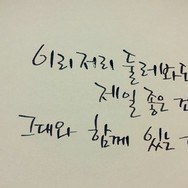 이리저리 둘러봐도
제일 좋은 건
그대와 함께 있는